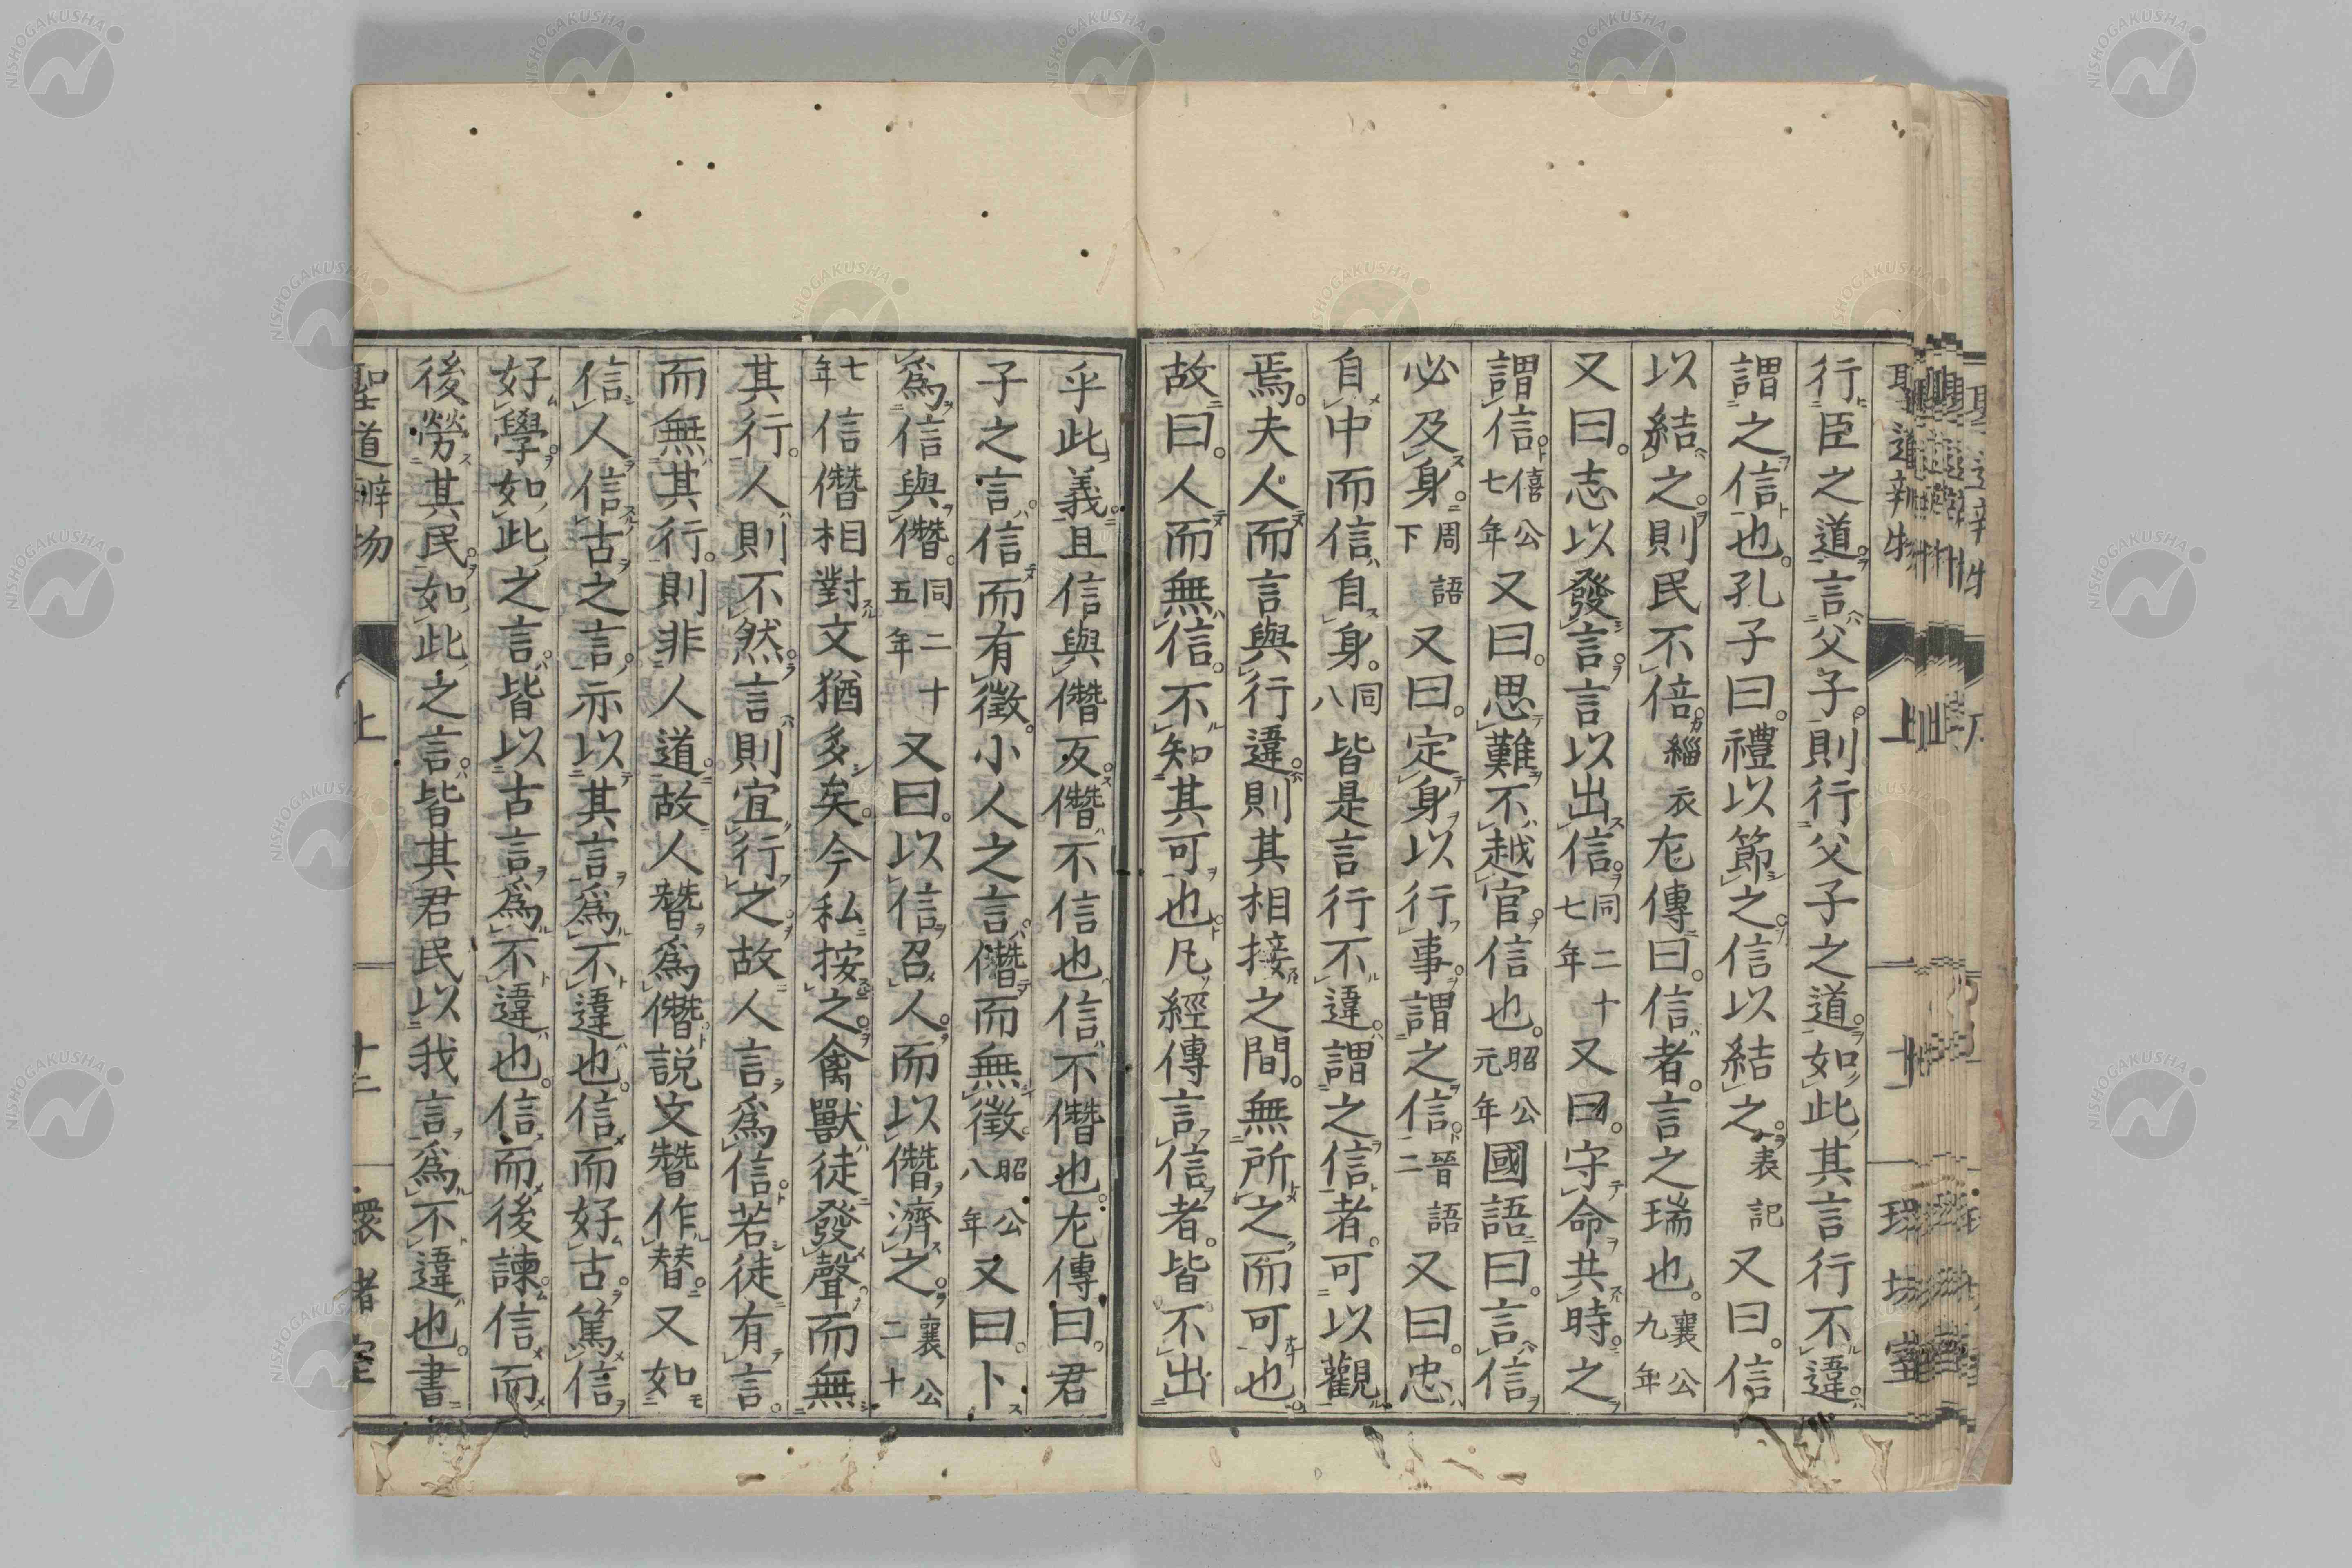 行臣之道言父子則行父子之道如此其言行不違
謂之信也孔子曰禮以節之信以結之表記又曰信
以結之則民不倍緇衣左傳曰信者言之瑞也襄公九年
又曰志以發言言以出信同二十七年又曰守命共時之
謂信僖公七年又曰思難不越官信也昭公元年國語曰言信
必及身周語下又曰定身以行事謂之信晉語二又曰忠
自中而信自身同八皆是言行不違謂之信者可以觀
焉夫人而言與行違則其相接之間無所之而可也
故曰人而無信不知其可也凡經傳言信者皆不出
乎此義且信與僭反僭不信也信不僭也左傳曰君
子之言信而有徵小人之言僭而無徵昭公八年又曰卜
爲信與僭同二十五年又曰以信召人而以僭濟之襄公二十
七年信僭相對文猶多矣今私按之禽獸徒發聲而無
其行人則不然言則宜行之故人言爲信若徒有言
而無其行則非人道故人朁爲僭説文朁作替又如
信人信古之言示以其言爲不違也信而好古篤信
好學如此之言皆以古言爲不違也信而後諫信而
後勞其民如此之言皆其君民以我言爲不違也書
聖道辨物 上 十二 環堵室